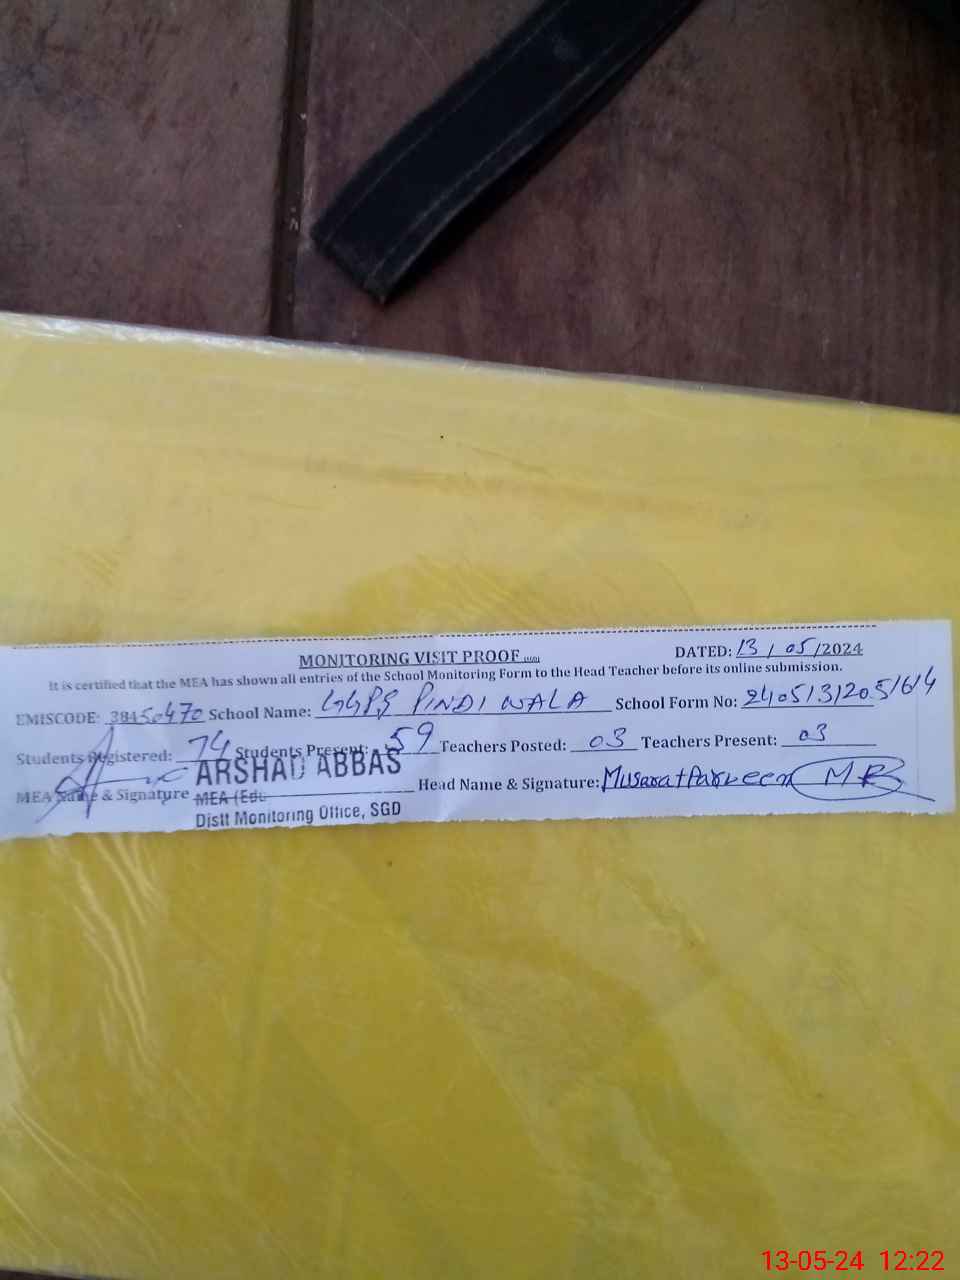 MONITORING VISIT PROOF
DATED: 13 / 05 /2024
It is certified that the MEA has shown all entries of the School Monitoring Form to the Head Teacher before its online submission.
EMISCODE: 38450470 School Name: GGPS PINDI WALA School Form No:
Students Registered: 74 Students Present: 59 Teachers Posted: 03 Teachers Present: 03
ARSHAD ABBAS
MEA Name & Signature MEA (Edu Head Name & Signature: Musarat Parveen
Distt Monitoring Office, SGD
13-05-24 12:22